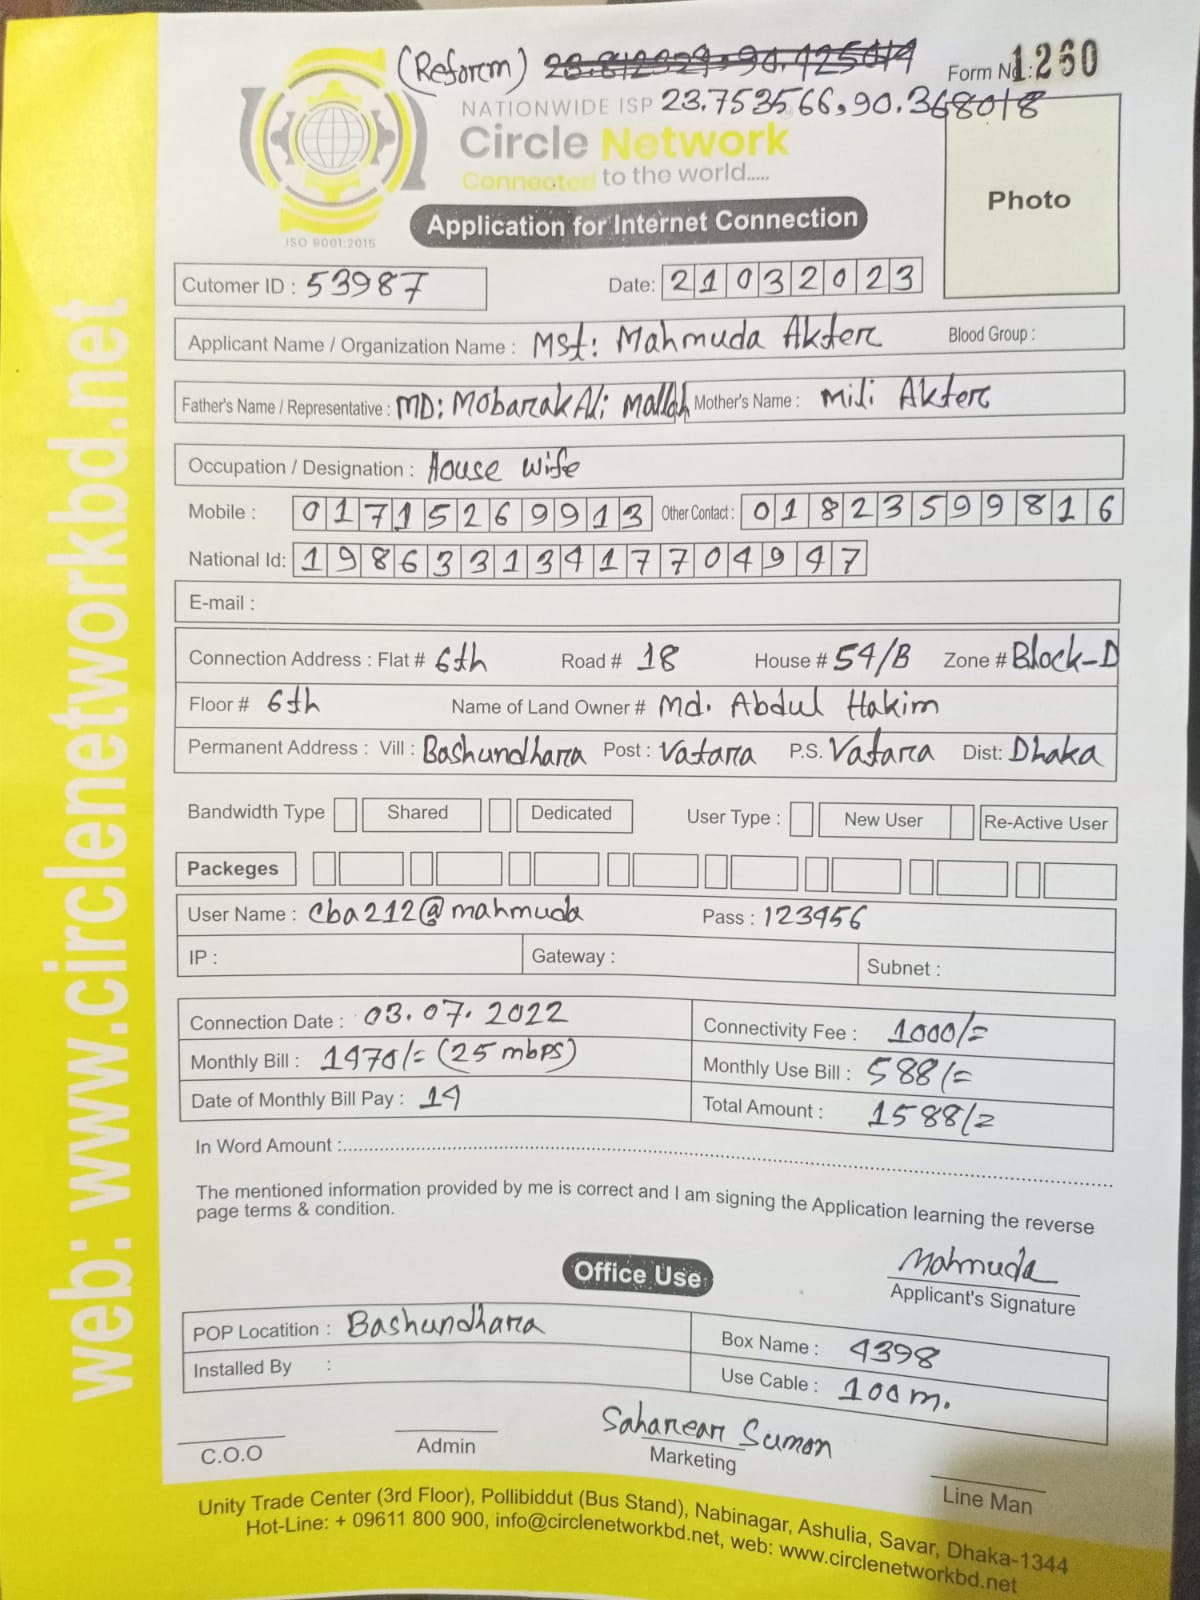 (Reform) Form No.: 1260
NATIONWIDE ISP 23.753566,90.368018
Circle Network
Connected to the world.....
ISO 9001:2015
Application for Internet Connection
Photo
Cutomer ID : 53987 Date: 21032023
Applicant Name / Organization Name : Mst: Mahmuda Akter Blood Group :
Father's Name / Representative : MD: Mobarak Ali Mollah Mother's Name : Mili Akter
Occupation / Designation : House wife
Mobile : 01715269913 Other Contact : 01823599816
National Id: 19863313417704947
E-mail :
Connection Address : Flat # 6th Road # 18 House # 54/B Zone # Block-D
Floor # 6th Name of Land Owner # Md. Abdul Hakim
Permanent Address : Vill : Bashundhara Post : Vatara P.S. Vatara Dist: Dhaka
Bandwidth Type Shared Dedicated User Type : New User Re-Active User
Packeges
User Name : cba212@mahmuda Pass : 123456
IP : Gateway : Subnet :
Connection Date : 03.07.2022 Connectivity Fee : 1000/=
Monthly Bill : 1470/= (25 mbps) Monthly Use Bill : 588/=
Date of Monthly Bill Pay : 14 Total Amount : 1588/=
In Word Amount :
The mentioned information provided by me is correct and I am signing the Application learning the reverse
page terms & condition.
Mahmuda
Applicant's Signature
Office Use
POP Locatition : Bashundhara Box Name : 4398
Installed By : Use Cable : 100 m.
Sumon
C.O.O Admin Marketing Line Man
Unity Trade Center (3rd Floor), Pollibiddut (Bus Stand), Nabinagar, Ashulia, Savar, Dhaka-1344
Hot-Line: + 09611 800 900, info@circlenetworkbd.net, web: www.circlenetworkbd.net
web: www.circlenetworkbd.net